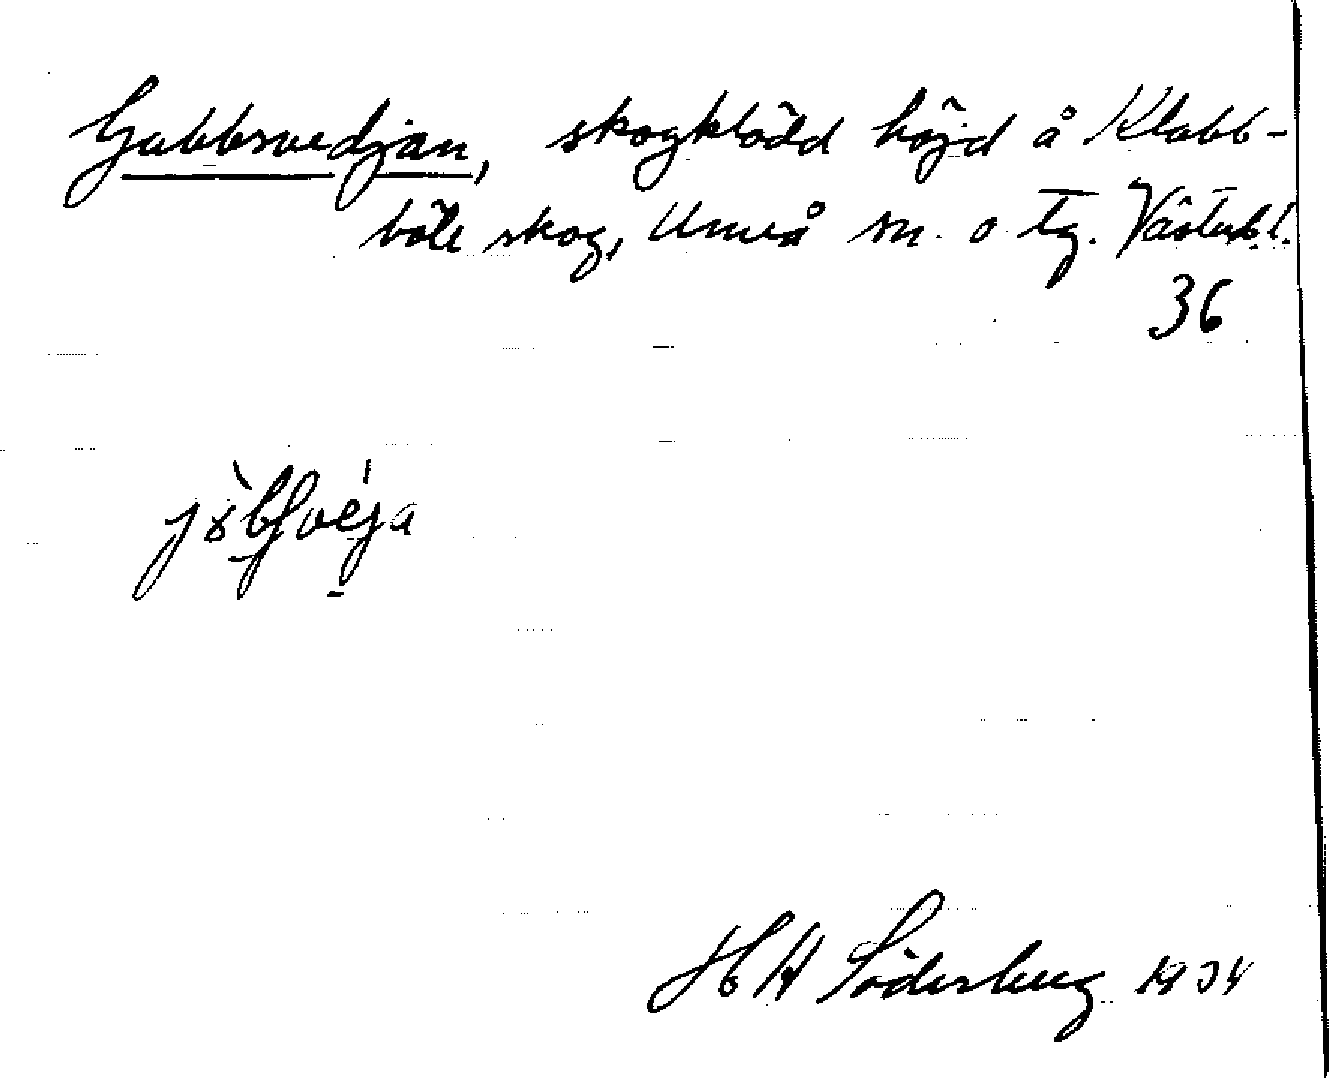 Gubbsvedjan, skogklädd höjd å Klabb-
böle skog, Umeå sn. o tg. Västerb.l.
36
H H Söderberg 1934